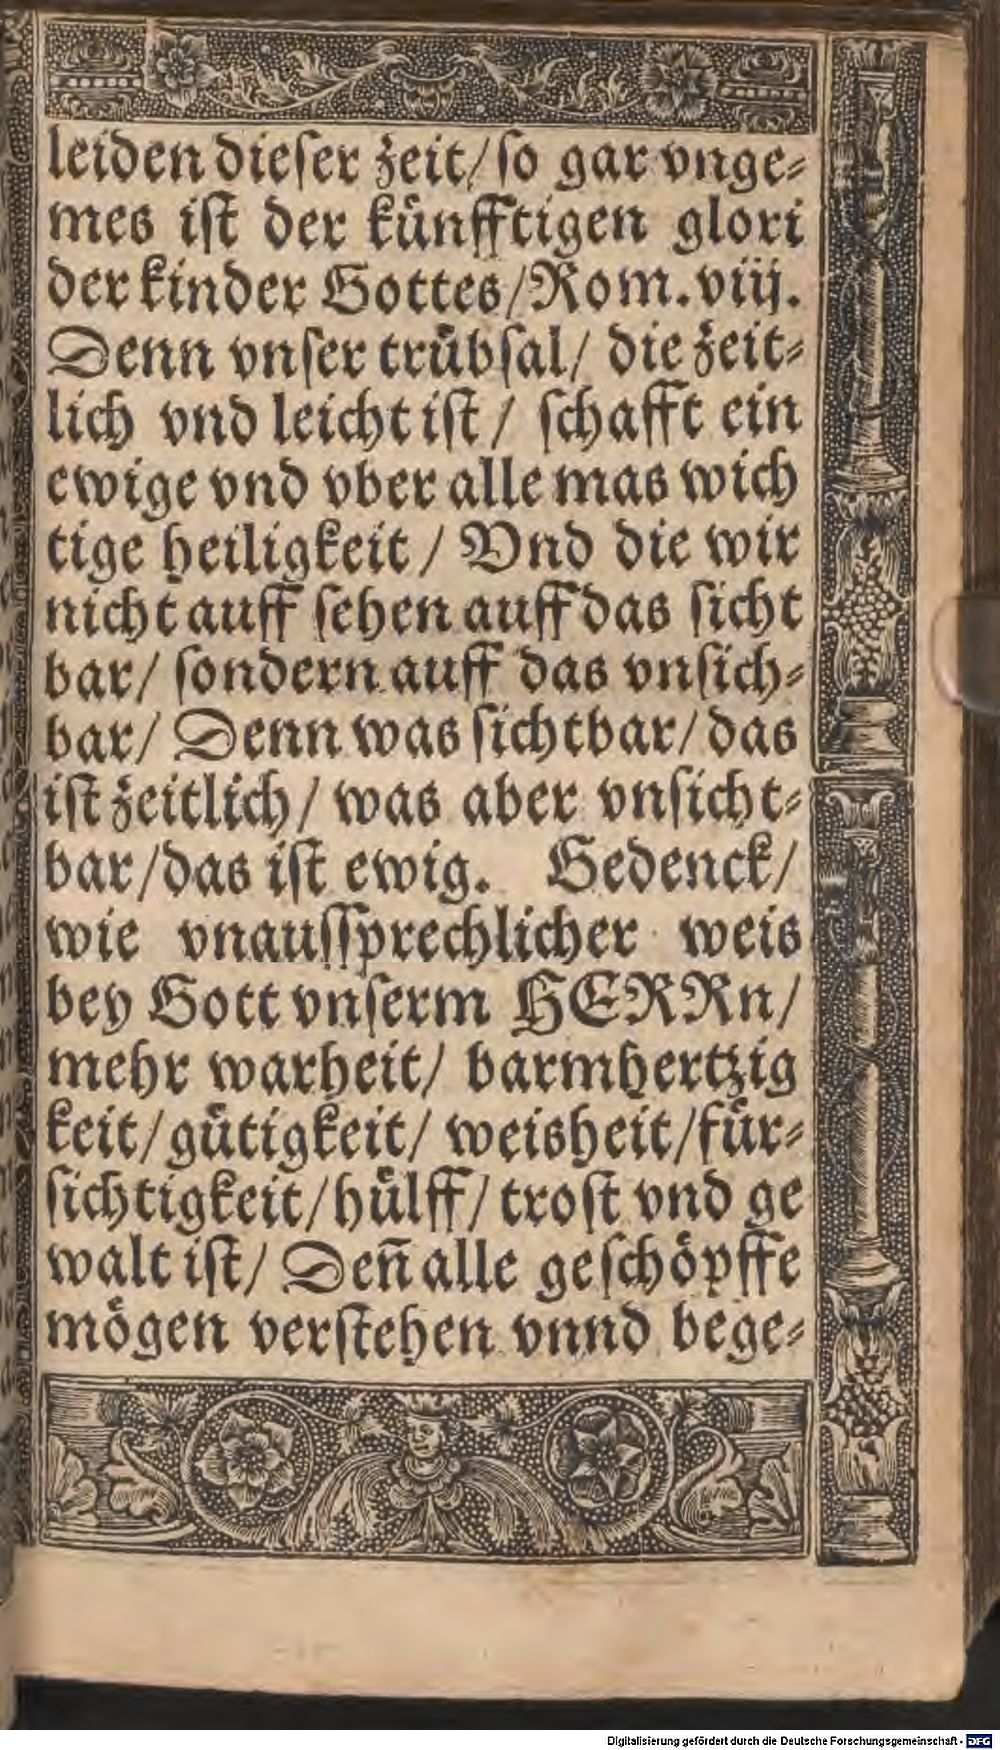 leiden dieſer zeit/ ſo gar vnge⸗
mes iſt der künfftigen glori
der kinder Gottes/ Rom. viij.
Denn vnſer trübſal/ die zeit⸗
lich vnd leicht iſt / ſchafft ein
ewige vnd vber alle mas wich
tige heiligkeit / Vnd die wir
nicht auff ſehen auff das ſicht
bar/ ſondern auff das vnſich⸗
bar/ Denn was ſichtbar/ das
iſt zeitlich / was aber vnſicht⸗
bar/ das iſt ewig. Gedenck/
wie vnausſprechlicher weis
bey Gott vnſerm HERRn/
mehr warheit/ barmhertzig
keit/ gütigkeit/ weisheit/ für⸗
ſichtigkeit/ hülff/ troſt vnd ge
walt iſt/ Deñ alle geſchöpffe
mögen verſtehen vnnd bege⸗
Digitalisierung gefördert durch die Deutsche Forschungsgemeinschaft - DFG